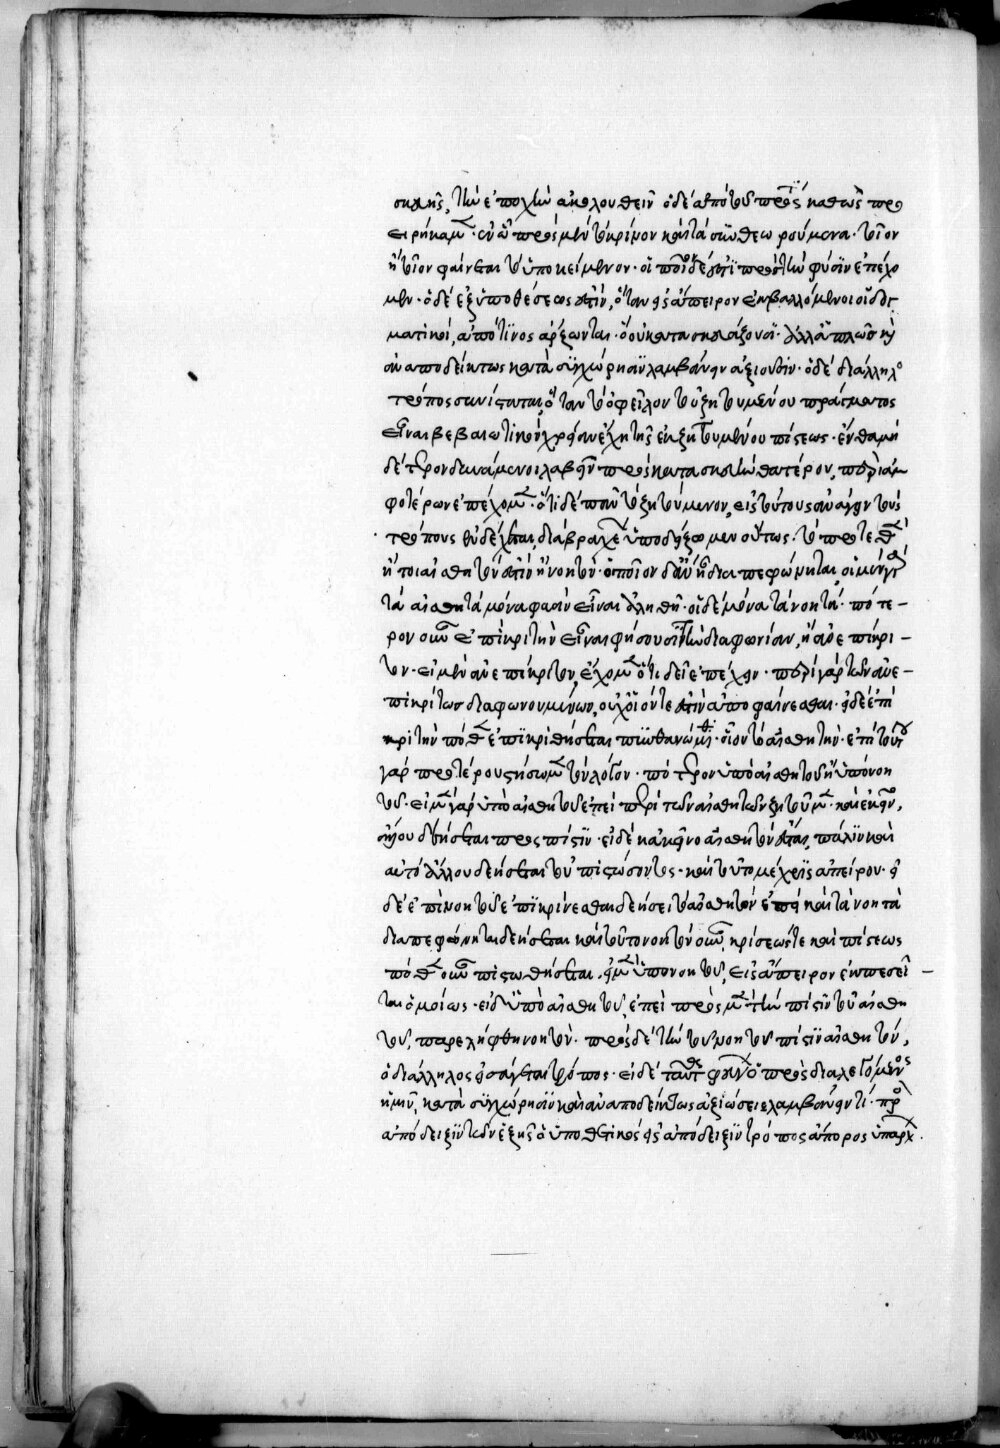 σκευῆς, τὴν ἐποχὴν ἀκολουθεῖν ὁ δὲ ἀπὸ τοῦ πρός τι καθὼς προ
ειρήκαμεν· ἐν ᾧ πρὸς μὲν τὸ κρίνον καὶ τὰ συνθεωρούμενα· τοῖον
ἢ τοῖον φαίνεται τὸ ὑποκείμενον· ὁποῖον δέ ἐστι πρὸς τὴν φύσιν ἐπέχο
μεν· ὁ δὲ ἐξ ὑποθέσεως ἐστὶν, ὅταν εἰς ἄπειρον ἐκβαλλόμενοι οἱ δογ
ματικοὶ, ἀπό τινος ἄρξωνται· ὃ οὐ κατασκευάζουσιν· ἀλλ' ἁπλῶς καὶ
ἀναποδείκτως κατὰ συγχώρησιν λαμβάνειν ἀξιοῦσιν· ὁ δὲ διάλληλος
τρόπος συνίσταται, ὅταν τὸ ὀφεῖλον τοῦ ζητουμένου πράγματος
εἶναι βεβαιωτικὸν χρείαν ἔχῃ τῆς ἐκ ζητουμένου πίστεως· ἔνθα μη
δέτερον δυνάμενοι λαβεῖν πρὸς κατασκευὴν θατέρου, περὶ ἀμ
φοτέρων ἐπέχομεν· ὅτι δὲ πᾶν τὸ ζητούμενον, εἰς τούτους ἀνάγειν τοὺς
τρόπους ἐνδέχεται, διὰ βραχέων ὑποδείξομεν οὕτως· τὸ προτεθὲν
ἤτοι αἰσθητόν ἐστιν ἢ νοητόν· ὁποῖον δ' ἂν ᾖ διαπεφώνηται, οἱ μὲν γὰρ
τὰ αἰσθητὰ μόνα φασὶν εἶναι ἀληθῆ· οἱ δὲ μόνα τὰ νοητά· πότε-
ρον οὖν ἐπικριτὴν εἶναι φήσουσι τὴν διαφωνίαν, ἢ ἀνεπίκρι-
τον· εἰ μὲν ἀνεπίκριτον, ἔχομεν ὅτι δεῖ ἐπέχειν· περὶ γὰρ τῶν ἀνε-
πικρίτως διαφωνουμένων, οὐχ οἷόντε ἐστὶν ἀποφαίνεσθαι· εἰ δὲ ἐπι
κριτὴν πόθεν ἐπικριθήσεται πυνθανόμεθα· οἷον τὸ αἰσθητὴν· ἐπὶ τούτου
γὰρ προτέρου στήσωμεν τὸν λόγον· πότερον ὑπὸ αἰσθητοῦ ἢ ὑπὸ νοη
τοῦ· εἰ μὲν γὰρ ὑπὸ αἰσθητοῦ ἐπεὶ περὶ τῶν αἰσθητῶν ζητοῦμεν· καὶ ἐκεῖνο,
ἄλλου δεήσεται πρὸς πίστιν· εἰ δὲ κἀκεῖνο αἰσθητὸν ἔσται, πάλιν καὶ
αὐτὸ ἄλλου δεήσεται τοῦ πιστώσοντος· καὶ τοῦτο μέχρις ἀπείρου· εἰ
δὲ ἐπὶ νοητοῦ ἐπικρίνεσθαι δεήσει τὸ αἰσθητὸν ἐπεὶ καὶ τὰ νοητὰ
διαπεφώνηται δεήσεται καὶ τοῦτο νοητὸν οὖν, κρίσεώς τε καὶ πίστεως
πόθεν οὖν πιστωθήσεται· εἰ μὲν ὑπὸ νοητοῦ, εἰς ἄπειρον ἐκπεσεῖ-
ται ὁμοίως· εἰ δ' ὑπὸ αἰσθητοῦ, ἐπεὶ πρὸς μὲν τὴν πίστιν τοῦ αἰσθη
τοῦ, παρελήφθη νοητὸν· πρὸς δὲ τὴν τοῦ νοητοῦ πίστιν αἰσθητόν,
ὁ διάλληλος εἰσάγεται τρόπος· εἰ δὲ ταῦτα φεύγων ὁ προσδιαλεγόμενος
ἡμῖν, κατὰ συγχώρησιν καὶ ἀναποδείκτως ἀξιώσειε λαμβάνειν τί· πρὸς
ἀπόδειξιν τῶν ἑξῆς ὁ ὑποθετικὸς εἰς ἀπόδειξιν τρόπος ἄπορος ὑπάρχων.